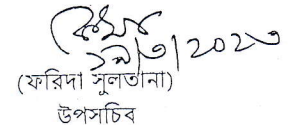 ১৯/৩/২০২৩
(ফরিদা সুলতানা)
উপসচিব